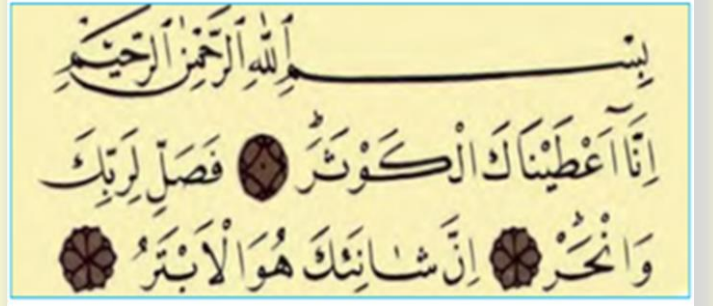 بِسْمِ اللّٰهِ الرَّحْمٰنِ الرَّحٖيمِ
اِنَّٓا اَعْطَيْنَاكَ الْكَوْثَرَ ۞ فَصَلِّ لِرَبِّكَ
وَانْحَرْ ۞ اِنَّ شَانِئَكَ هُوَ الْاَبْتَرُ ۞